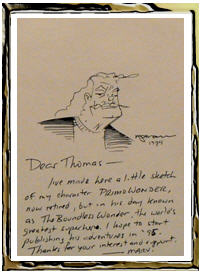 1994
Dear Thomas —
I've made here a little sketch
of my character PRIMO WONDER,
now retired, but in his day known
as The Boundless Wonder, the world's
greatest superhero. I hope to start
publishing his adventures in '95.
Thanks for your interest and support.
— MARV.